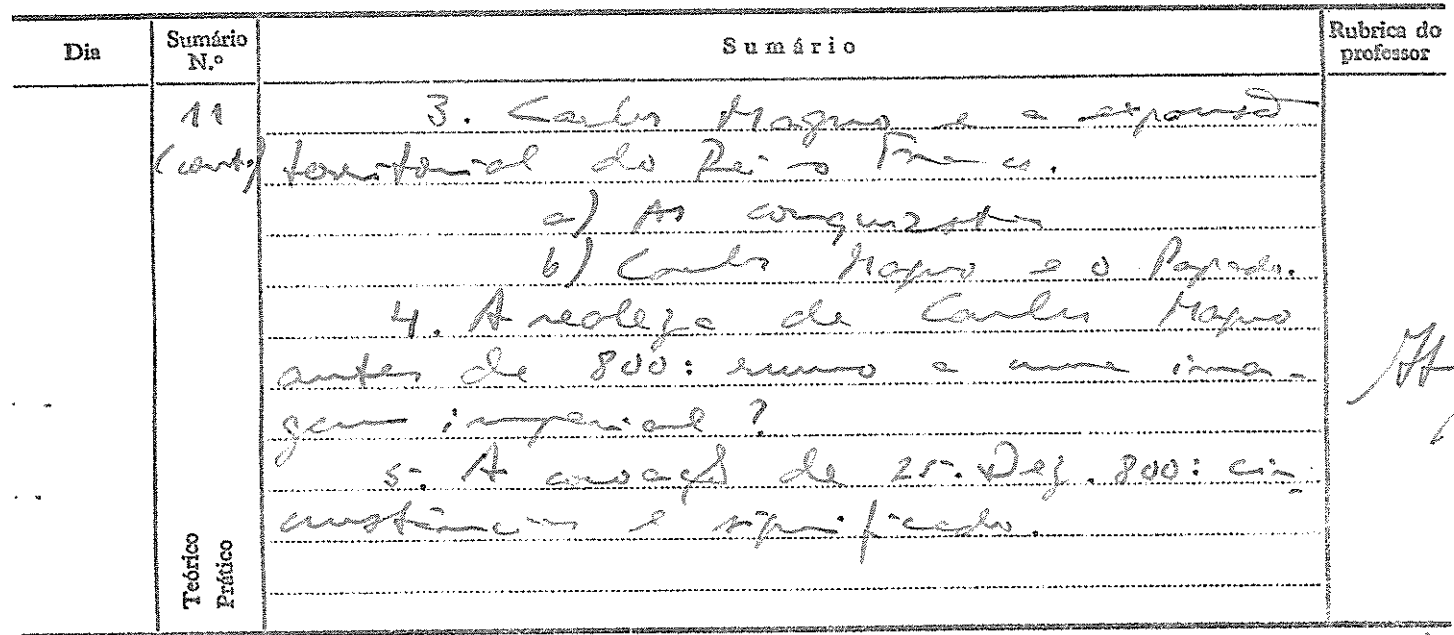 Dia Sumário N.º Sumário Rubrica do professor
11 3. Carlos Magno e a expansão
(cont.) territorial do Reino Franco.
a) As conquistas
b) Carlos Magno e o Papado.
4. A realeza de Carlos Magno
antes de 800: rumo a uma ima-
gem imperial?
5. A coroação de 25. Dez. 800: cir-
cunstâncias e significado.
Teórico
Prático